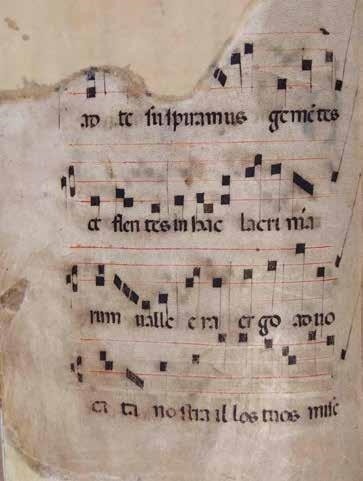 ad te suspiramus gemētes
et flentes in hac lacrima
rum valle e ia ergo advo
ca ta nostra il los tuos mise